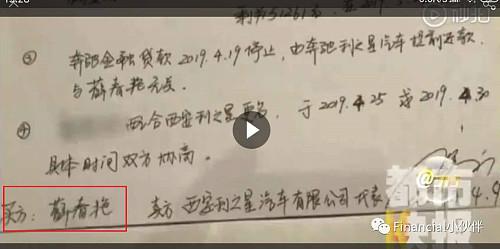 秒拍
③ 奔驰金融贷款 2019.4.19停止,由奔驰利之星汽车提前还款
与薛春艳无关。
④ 配合西安利之星更名,于2019.4.25或2019.4.30
具体时间双方协商。
买方:薛春艳 卖方 西安利之星汽车有限公司 代表
都市快报
Financial小伙伴